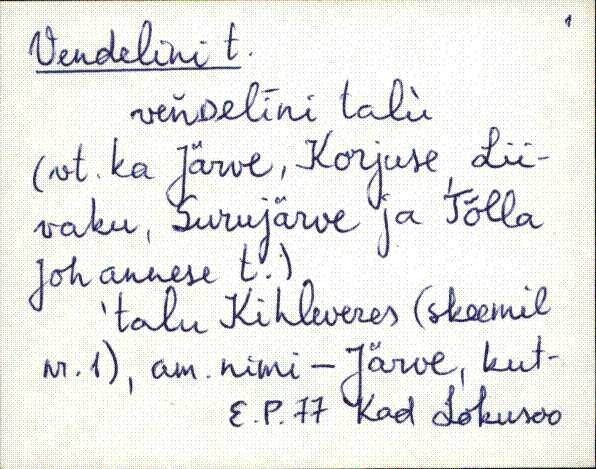 1
Vendelini t.
veńDelīni talù
(vt. ka Järve, Korjuse, Lii-
vaku, Surujärve ja Tõlla
Johannese t.)
'talu Kihleveres (skeemil
nr. 1), am. nimi – Järve, kut-
E.P. 77 Kad Lokusoo